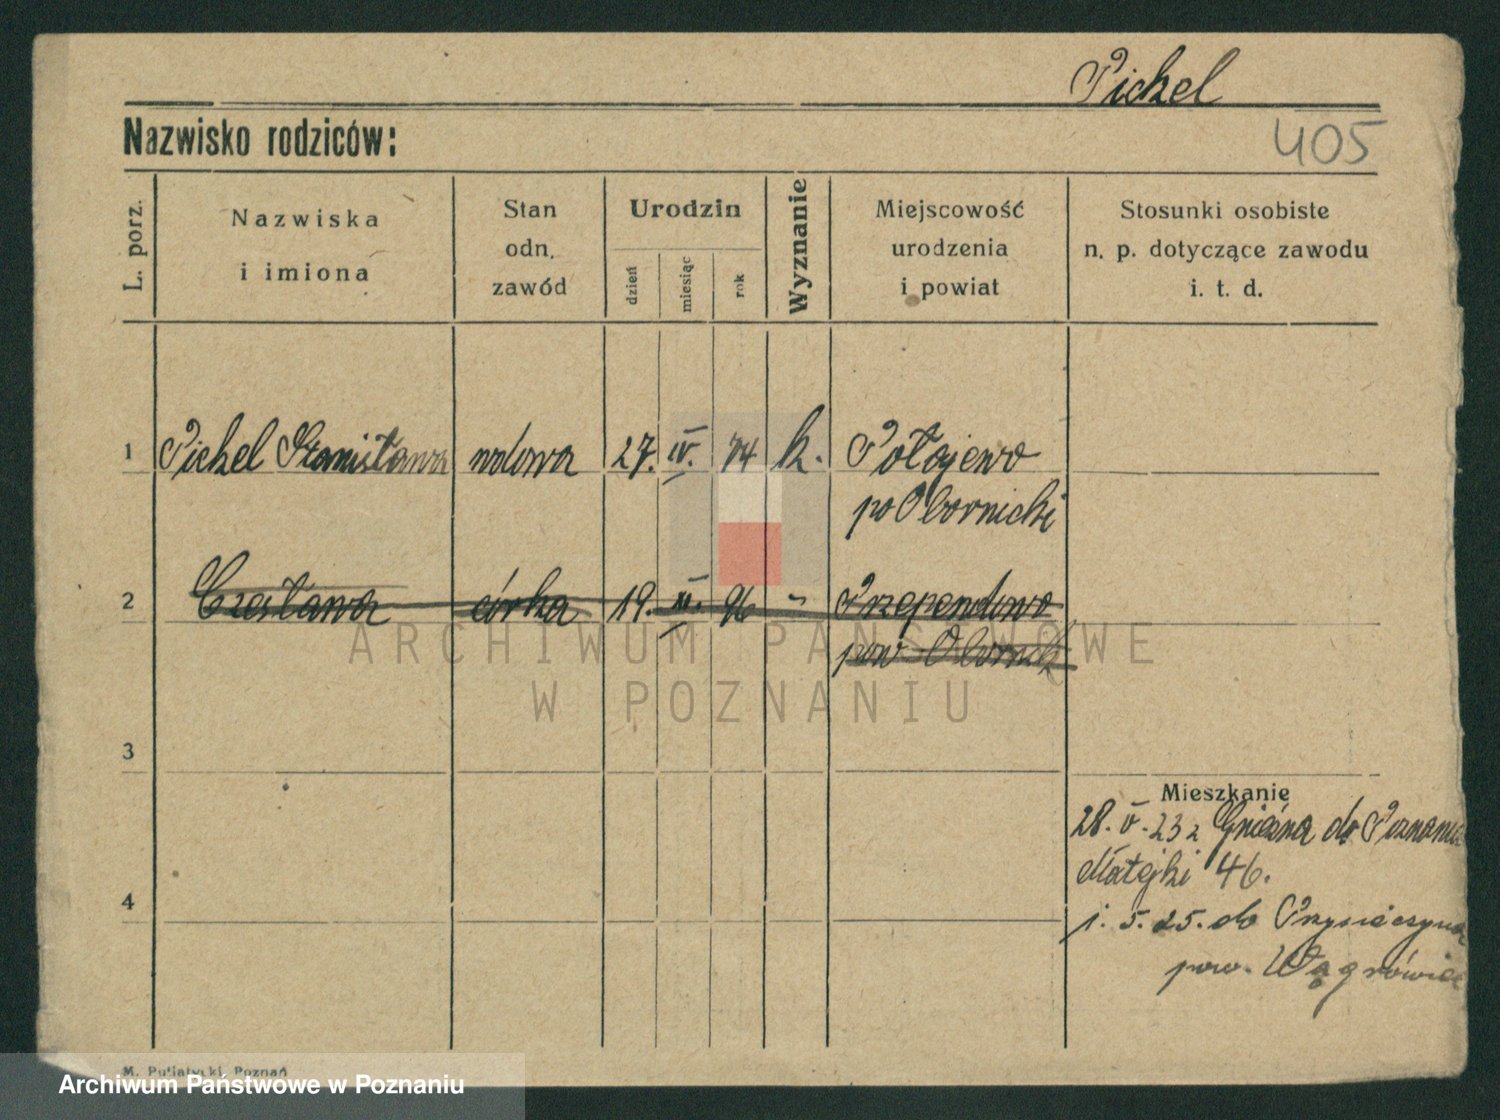 Pickel
Nazwisko rodziców:
405
L. porz.
Nazwiska
i imiona
Stan
odn.
zawód
Urodzin
dzień
miesiąc
rok
Wyznanie
Miejscowość
urodzenia
i powiat
Stosunki osobiste
n. p. dotyczące zawodu
i. t. d.
1 Pickel Stanisława wdowa 27. IV. 74 k. Połajewo
po Obornicki
2 Czesława córka 19. 96 " Przependowo
pow Obornik
ARCHIWUM PAŃSTWOWE
W POZNANIU
3
Mieszkanie
28. V. 23 z Gniezna do Poznania
Matejki 46.
4
1. 5. 25. do Przysieczyna
pow. Wągrówiec
M. Putiatycki, Poznań
Archiwum Państwowe w Poznaniu